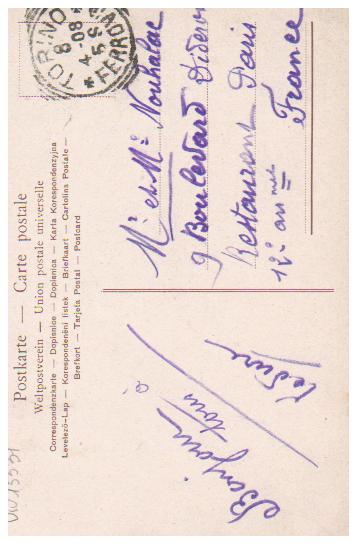 TORINO FERROVIA
8 4-08 5S
Postkarte — Carte postale
Weltpostverein — Union postale universelle
Correspondenzkarte — Dopisnice — Dopisnica — Karta Korespondenzyjna
Levelező-Lap — Korespondenční lístek — Briefkaart — Cartolina Postale —
Brefkort — Tarjeta Postal — Postcard
Mr et Me Nouhalac
9 Boulevard Diderot
Restaurant Paris
12e
France
Bonjour à
tous